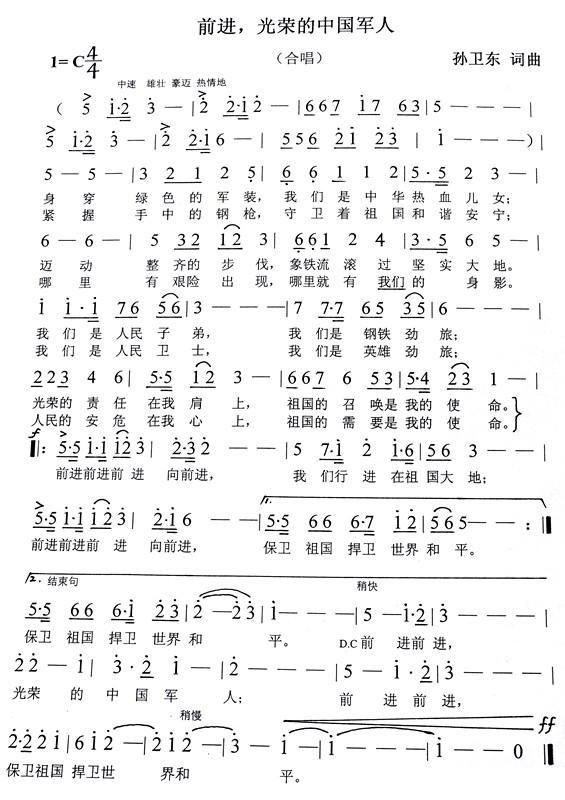 前进，光荣的中国军人
1=C 4/4 （合唱） 孙卫东 词曲
中速 雄壮 豪迈 热情地
( 5 i·2 3 — | 2 2·i2 — — | 667 i7 63 | 5 — — — |
5 i·2 3 — | 2 2·i 6 — | 556 2i 23 | i — — — ) |
5 — 5 — | 3 2 1 2 5 | 6 6 1 1 1 | 5·5 2 3 — |
身 穿 绿 色 的 军 装， 我 们 是 中 华 热 血 儿 女；
紧 握 手 中 的 钢 枪， 守 卫 着 祖 国 和 谐 安 宁；
6 — 6 — | 5 32 12 3 | 661 2 4 | 3·5 6 5 — |
迈 动 整 齐 的 步 伐， 象铁流 滚 过 坚 实 大 地。
哪 里 有 艰险 出 现， 哪里就 有 我们 的 身 影。
i i·i 76 56 | 3 — — — | 7 7·7 65 35 | 6 — — — |
我 们 是 人民 子 弟， 我 们是 钢铁 劲 旅；
我 们 是 人民 卫 士， 我 们是 英雄 劲 旅；
223 4 6 | 5·5 12 3 — | 667 6 5 3 | 5·4 23 1 — |
光荣的 责 任 在我 肩 上， 祖国的 召 唤是 我的 使 命。
人民的 安 危 在我 心 上， 祖国的 需 要是 我的 使 命。
f
‖: 5·5 i·i i23 | 2·32 — — | 5 7i 2 i·6 | 5 6 3 — — |
前进前进前 进 向前进， 我 们行 进 在祖 国大 地；
5·5 i·i i23 | 2·i6 — — | 5·5 66 6·7 i2 | 565 — — :‖
1.
前进前进前 进 向前进， 保卫 祖国 捍卫 世界 和 平。
2. 结束句 稍快
5·5 66 6·i 23 | 2 —23 | i — — — | 5 —i·23 — — — |
保卫 祖国 捍卫 世界 和 平。 D.C 前 进前 进，
22 — i | 3·2 3 — | 2 — — — | 5 — i·2 | 3 — — — |
光荣 的 中 国 军 人； 前 进前 进，
稍慢 ff
2·22i | 6i2 — | 2i2 — | 3 — i | i — — — | i — 0 ‖
保卫祖国 捍卫世 界和 平。